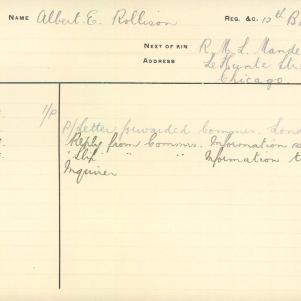 NAME Albert E. Rollison REG. &c. 12th B
NEXT OF KIN R. M. L. Mande
ADDRESS Le Hunte Stre
Chicago
1/p
P/ Letter forwarded Commrs. Lond
Reply from Commrs. Information re
"Slip" " " Information t
Inquirer